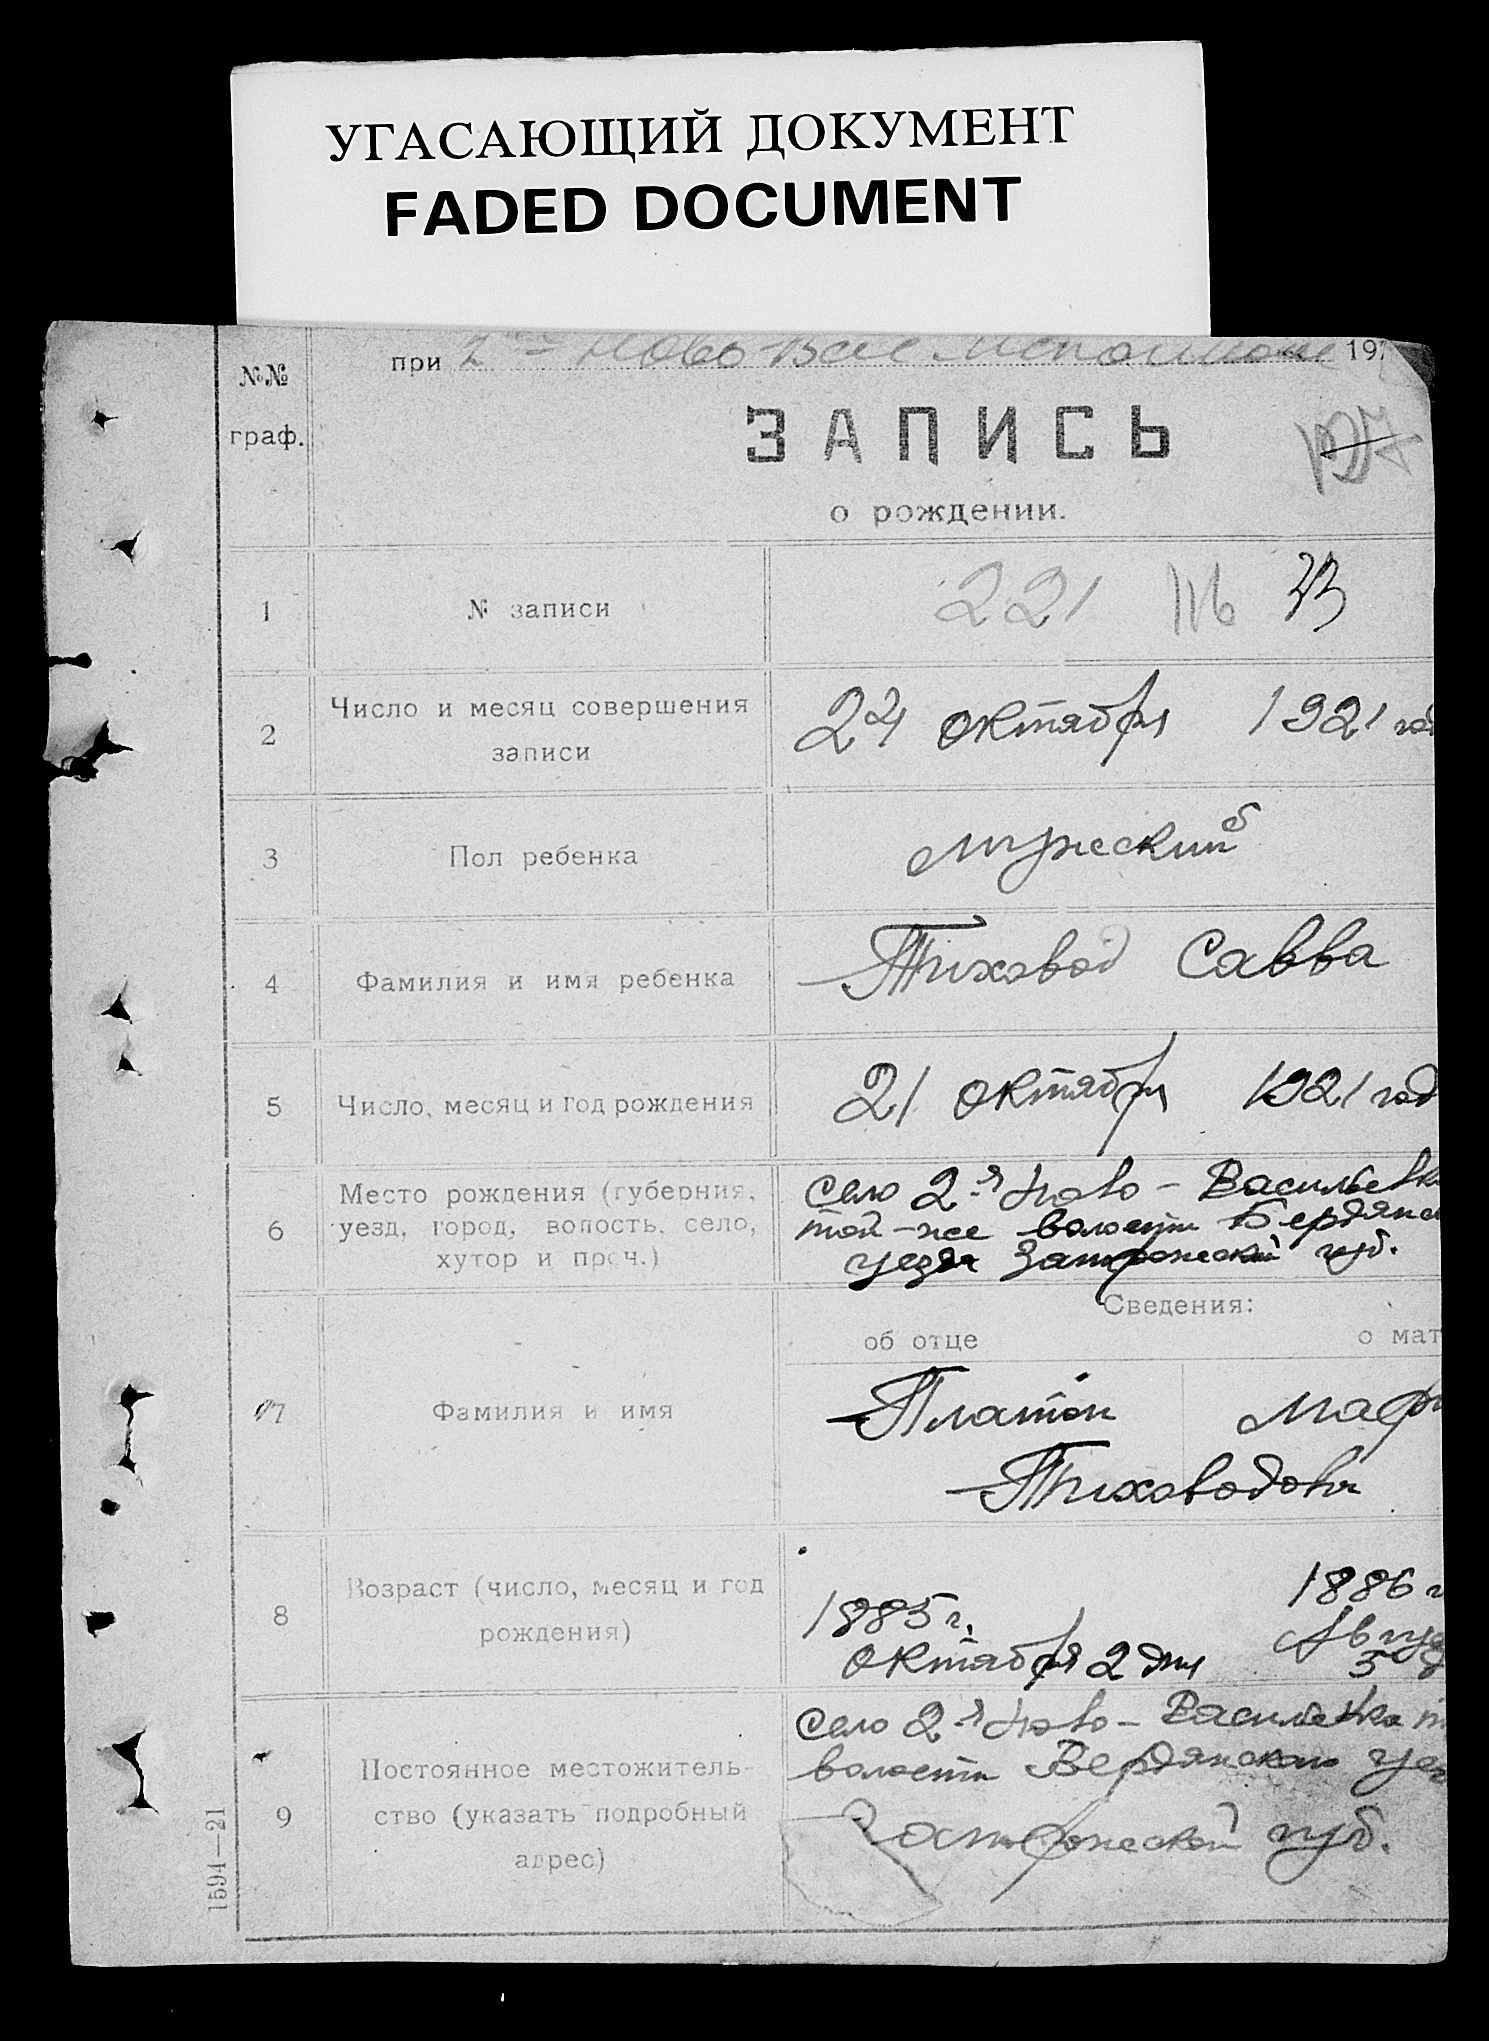 УГАСАЮЩИЙ ДОКУМЕНТ
FADED DOCUMENT
№№
граф.
при 2ю - Ново-Вас. 192
ЗАПИСЬ
о рождении.
1 № записи 221 116 73
2 Число и месяц совершения
записи
24 октября 1921 год
3 Пол ребенка мужский
4 Фамилия и имя ребенка Тиховод Савва
5 Число, месяц и год рождения 21 октября 1921 год
6 Место рождения (губерния,
уезд, город, волость, село,
хутор и проч.)
Село 2-я Ново-Васильевка
той-же волости Бердянс
уезда Запорожской губ.
Сведения:
об отце о мат
7 Фамилия и имя
Платон Мар
Тиховодовы
8 Возраст (число, месяц и год
рождения)
1885 г. 1886 г
октября 2 дня Авгус
5 д
9 Постоянное местожитель-
ство (указать подробный
адрес)
Село 2-я Ново-Васильевка т
волости Бердянского уез
Запорожской губ.
1594—21